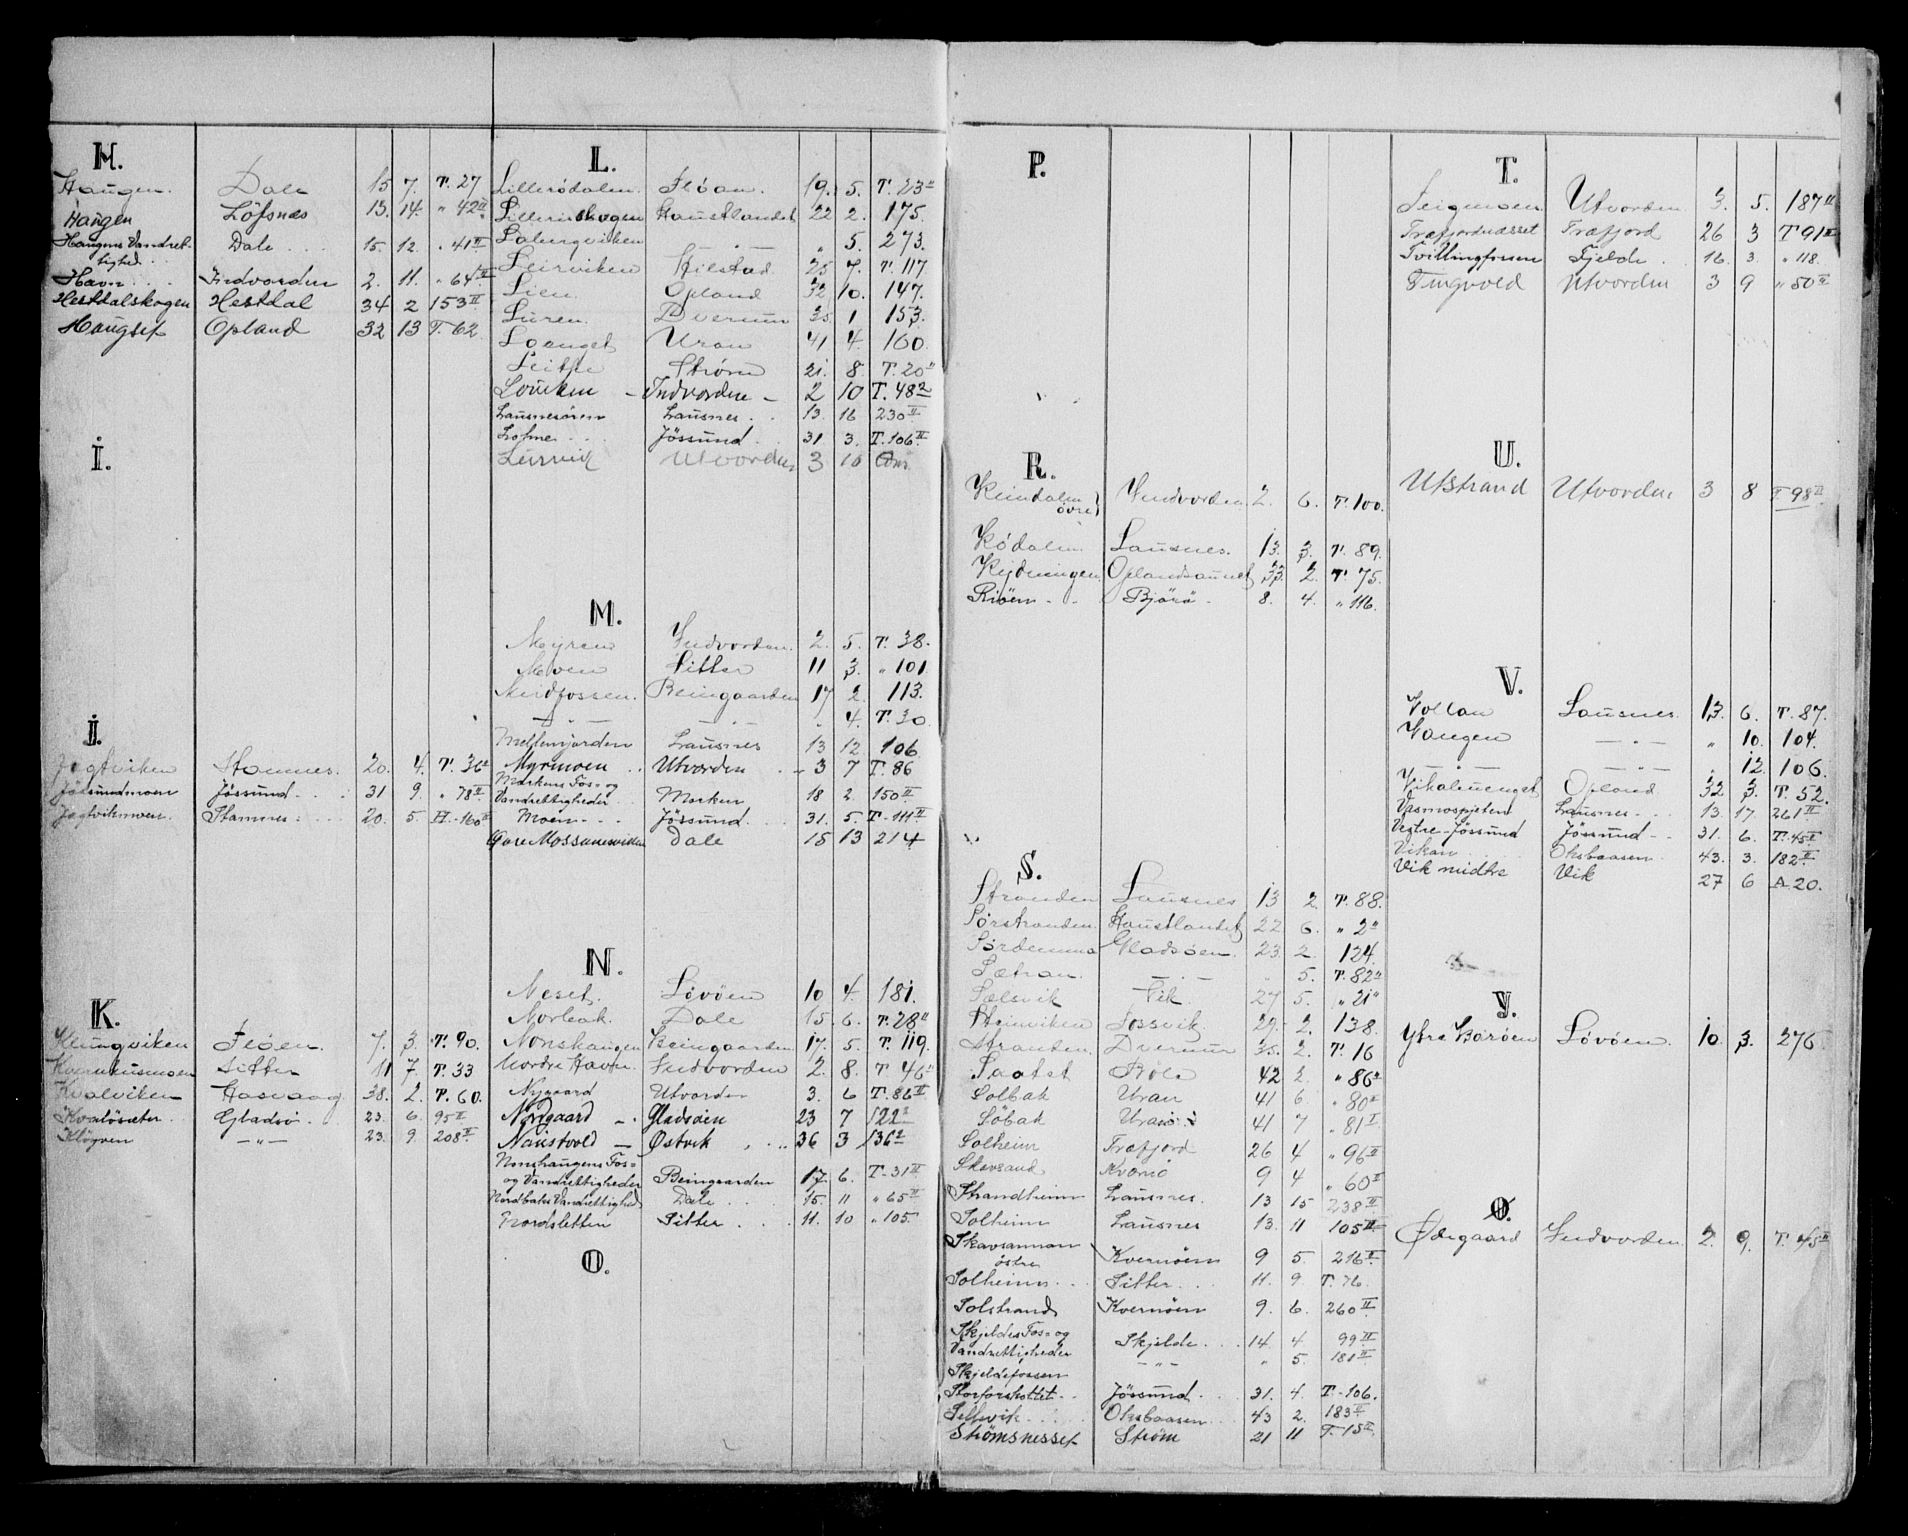 H.
Haugen. Dale 15 7. T. 27
Haugen Löfsnæs 13. 14. " 42 II
Haugens Vandret-
tighed Dale 15. 12. " 41 II
Havn Indvorden 2. 11. " 64 II
Hestdalskogen Hestdal 34 2 153 II
Haugset Opland 32 13 T. 62
I.
J.
Jagtviken Stamnes. 20. 4. T. 36
Jössundmoen Jössund 31 9. " 78 II
Jagtvikmoen Stamnes 20. 5. II - 160
K.
Klungviken Fløen. 7. 3. T. 90.
Kvernhusmoen Sitter 11 7. T. 33
Kvalviken Hasvaag 38. 2. T. 60.
Kvaløsæter Gladsø 23. 6. 95 II
Kløyven —"— 23. 9. 208 II
L.
Lillerödalen Fløan. 19. 5. T. 23
Haustlandet 22 2. 175.
Laubergviken — " — " 5. 273.
Leirviken Kilstad 25 7. T. 117
Lien Opland 32 10. 147.
Luren Dverum 35 1 153.
Loenget Uran 41 4. 160
Leithe Strøm 21. 8. T. 20
Loviken – Indvorden – 2 10 T. 48
Lausnesören Lausnes 13. 16 230 II
Lofne Jössund 31 3. T. 106 II
Leirvik Utvorden 3 10
M.
Myren Indvorden. 2. 5. T. 38.
Moen Sitter 11 3. " 101
Midfossen. Beingaarden 17 2 113.
— " — — " — " 4. T. 30.
Mellemjorden Lausnes 13 12. 106
Myrmoen Utvorden 3 7 T. 86
Morkens Fos- og
Vandrettigheder Morken 18 2. 150 II
Moen Jössund. 31. 5. T - 111 II
Dale 15 13 214
N.
Neset. Løvøen 10 4. 181.
Norbak. Dale 15. 6. T. 28
Nonshaugen Beingaarden 17. 5. T. 119.
Nordre Havn. Indvorden 2. 8. T 46
Nygaard Utvorden 3. 6 T. 86 II
Norgaard Gladsøen 23 7 122
Naustvold — Østvik 36 3 136
Nonshaugens Fos-
og Vandrettigheder Beingaarden 17. 6. T. 31 II
Nordbaks Vandrettighed Dale 15. 11 " 65 II
Nordsletten Sitter 11. 10 " 105.
O.
P.
R.
Reindalen
övre Indvorden 2. 6. T. 100.
Rödalen Lausnes. 13. 3. T. 89.
Rydningen Oplandsaunet 33. 2. T. 75.
Riöen Bjørø 8. 4. " 116.
S.
Stranden Lausnes 13 2 T. 88.
Sørstranden. Haustlandet 22 6. " 2
Gladsøen. 23. 2. 124.
Sætran. — " — " 5. T. 82
Sælsvik Vik 27 5. " 21
Steinviken Fossvik. 29. 2. 138.
Stranden. Dverum 35. 2. T. 16
Saatet Role 42 2. " 86
Solbak Uran 41 6 " 80
Søbak Uran 41 7 " 81 II
Solheim Træfjord 26 4 " 96 II
Skavsand Kvernö 9 4 " 60 II
Strandheim Lausnes. 13 15 238 II
Solheim Lausnes 13. 11 105 II
Skavsannan
östre Kvernöen 9 5. 216 II
Solheim Sitter 11. 9. T. 76.
Solstrand Kvernöen 9. 6. 260 II
Skjeldes Fos- og
Vandrettigheder Skjelde 14. 4. 99 II
— " — " 5. 181 II
Skjeldefossen
Storforskottet Jössund 31. 4. T - 106.
Selsvik Oksbaasen 43 2. 183 II
Strømsnesset Strøm 21 11 T. 15 II
T.
Teigmoen Utvorden 3. 5. 187 II
Træfjordnæsset Træfjord 26 3 T 91 II
Tvillingfossen Fjelde 16. 3. " 118.
Tingvold Utvorden 3 9 " 50 II
U.
Utstrand Utvorden 3 8 T 98 II
V.
Vollan Lausnes 13. 6. T. 87.
Vangen — " — " 10. 104.
— " — — " — " 12. 106.
Vikaluenget Opland 32 3. T. 52.
Vasmospjeten Lausnes 13. 17. 261 II
Vestre-Jössund Jössund 31. 6. T. 45 II
Vikan Oksbaasen. 43. 3. 182 II
Vik midtre Vik 27 6 A 20.
Y.
Ytre Barøen Løvøen. 10 3. 276
Ø.
Ødegaard Indvorden 2. 9. T. 45 II